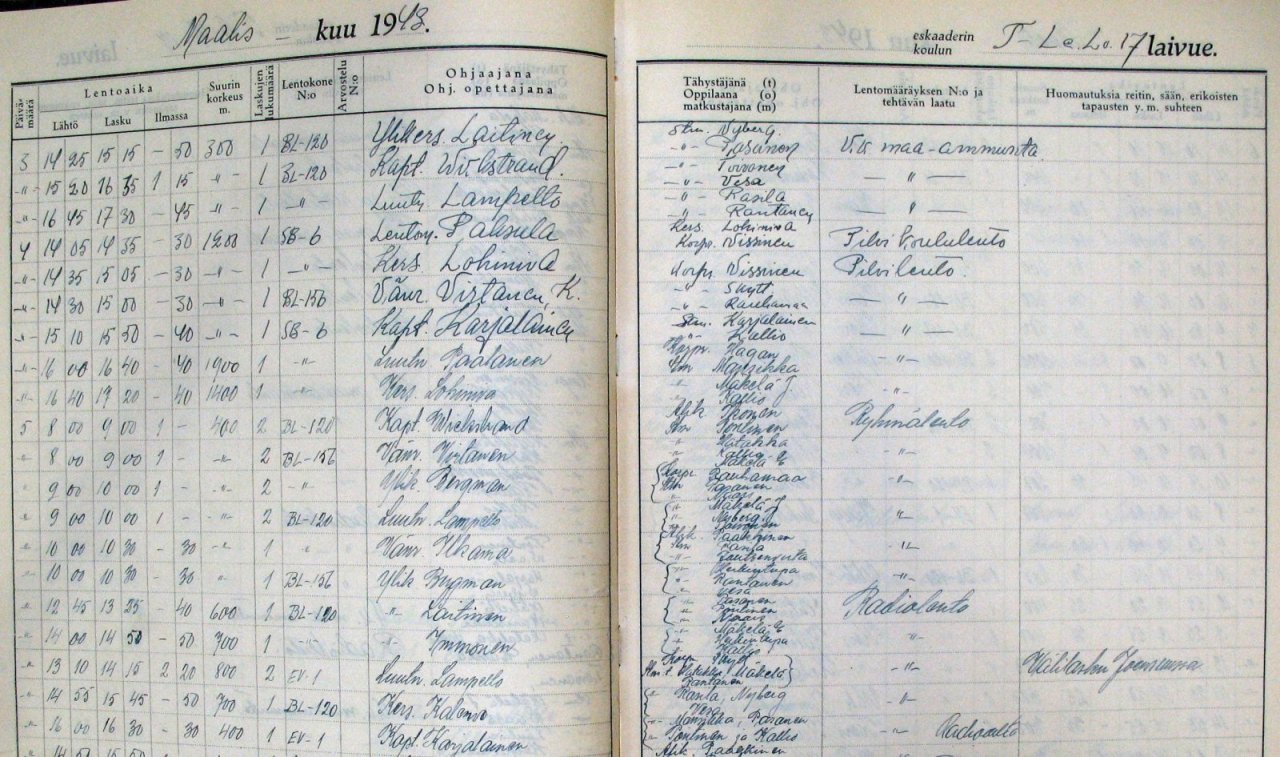 Maalis – kuu 1943.
Päivämäärä
Lentoaika
Lähtö Lasku Ilmassa
Suurin korkeus m.
Laskujen lukumäärä
Lentokone N:o
Arvostelu N:o
Ohjaajana
Ohj. opettajana
3 14 25 15 15 – 50 300 1 BL-120 Ylikers. Laitinen
-"- 15 20 16 35 1 15 -"- 1 BL-120 Kapt. Wickstrand.
-"- 16 45 17 30 – 45 -"- 1 -"- Luutn. Lampelto
4 14 05 14 35 – 30 1200 1 SB-6 Palsula
-"- 14 35 15 05 – 30 -"- 1 -"- Kers. Lohiniva
-"- 14 30 15 00 – 30 -"- 1 BL-156 Vänr. Virtanen, K.
-"- 15 10 15 50 – 40 -"- 1 SB-6 Kapt. Karjalainen
-"- 16 00 16 40 – 40 1900 1 -"- Luutn. Paalanen
-"- 16 40 19 20 – 40 1400 1 -"- Kers. Lohiniva
5 8 00 9 00 1 – 400 2 BL-120 Kapt. Wickstrand
" 8 00 9 00 1 – -"- 2 BL-156 Vänr. Virtanen
9 00 10 00 1 – -"- 2 -"- Ylik. Bergman
" 9 00 10 00 1 – -"- 2 BL-120 Luutn. Lampelto
" 10 00 10 30 – 30 -"- 1 " Vänr. Ilkama
" 10 00 10 30 – 30 " 1 BL-156 Ylik. Bergman
" 12 45 13 25 – 40 600 1 BL-120 -"- Laitinen
" 14 00 14 50 – 50 700 1 -"- -"- Immonen
" 13 10 14 15 2 20 800 2 EV-1 Luutn. Lampelto
" 14 55 15 45 – 50 700 1 BL-120 Kers.
" 16 00 16 30 – 30 400 1 EV-1 Kapt. Karjalainen
eskaaderin
koulun
T-Le.Lv.17 laivue.
Tähystäjänä (t)
Oppilaana (o)
matkustajana (m)
Lentomääräyksen N:o ja
tehtävän laatu
Huomautuksia reitin, sään, erikoisten
tapausten y. m. suhteen
Stm. Nyberg.
-"- Pasanen V.v. maa-ammunta.
-"- Toivonen
-"- Vesa — " —
-"- Rasila
-"- Rantanen — " —
Kers. Lohiniva
Korpr. Nissinen Pilvi koululento
Korpr. Nissinen Pilvilento.
-"- Skytt
-"- Rauhamaa — " —
Stm. Karjalainen
-"- Kallio — " —
Korpr. Hagan
Stm Mansikka -"-
-"- Mäkelä J
Kallio -"-
Alik Ikonen
Stm Pontinen Ryhmälento
" Hatakka
Mäkelä E -"-
Korpr. Rauhamaa
Stm Pasanen -"-
" Mäkelä J
" Nyberg "
Toivonen
Alik. Paakkinen
Stm Ranta -"-
-"- Rantanen -"-
Vesa
" Pasanen
" Pontinen Radiolento
" Mäkelä E
Kallio -"-
Korpr. Skytt
Stm t. Hatakka, Mäkelä -"- Välilasku Joensuussa
Rantanen
" Ranta, Nyberg -"-
Vesa
-"- Mansikka, Pasanen -"- Radiolento
" Pontinen ja Kallio
Alik. Paakkinen